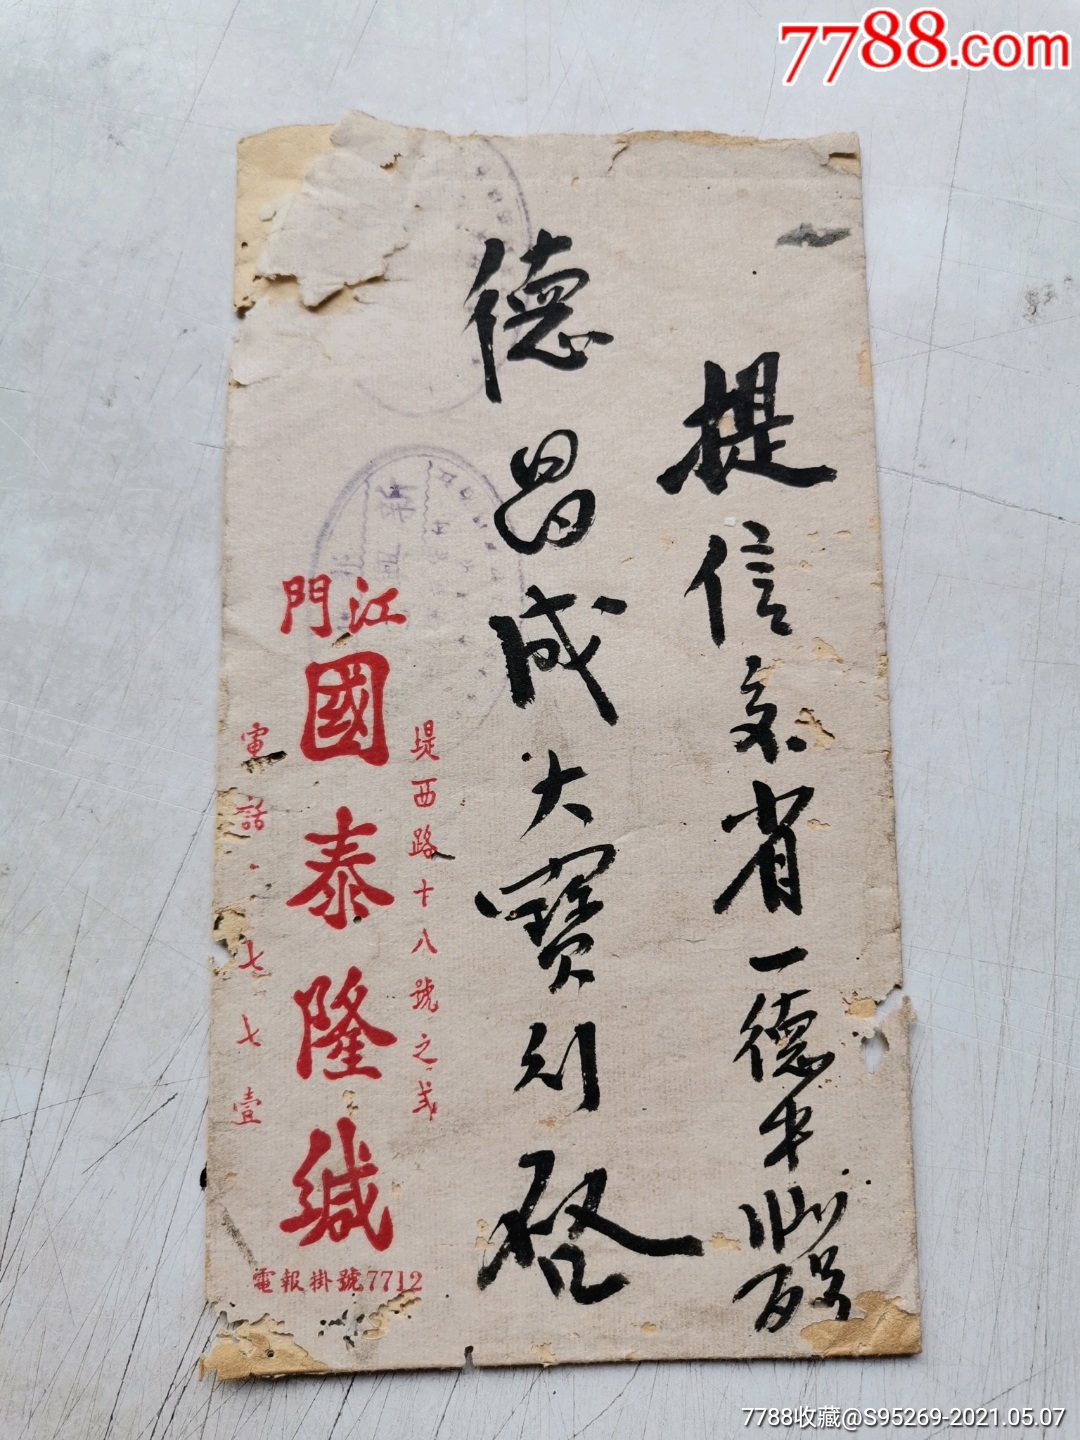 7788.com
提信交省一德中
德昌成大寶列啟
堤西路十八號之弍
江門
國泰隆緘
電話·七七壹
電報掛號7712
新
7788收藏@S95269-2021.05.07